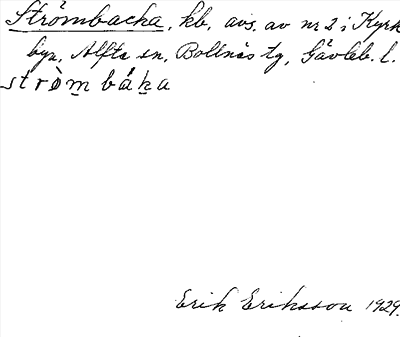 Strömbacka, kb, avs. av nr 2 i Kyrk
byn, Alfta sn, Bollnäs tg, Gävleb. l.
strö̀m bák̲a
Erik Eriksson 1929.